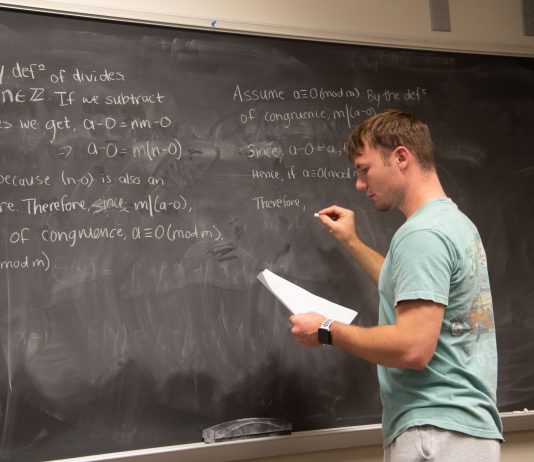 def² of divides
n∈ℤ. If we subtract
we get, a-0=nm-0
⇒ a-0=m(n-0)
because (n-0) is also an
Therefore, since m|(a-0),
of congruence, a≡0(mod m).
(mod m).
Assume a≡0(mod m). By the def²
of congruence, m|(a-0).
Since, a-0=a,
Hence, if a≡0(mod
Therefore,